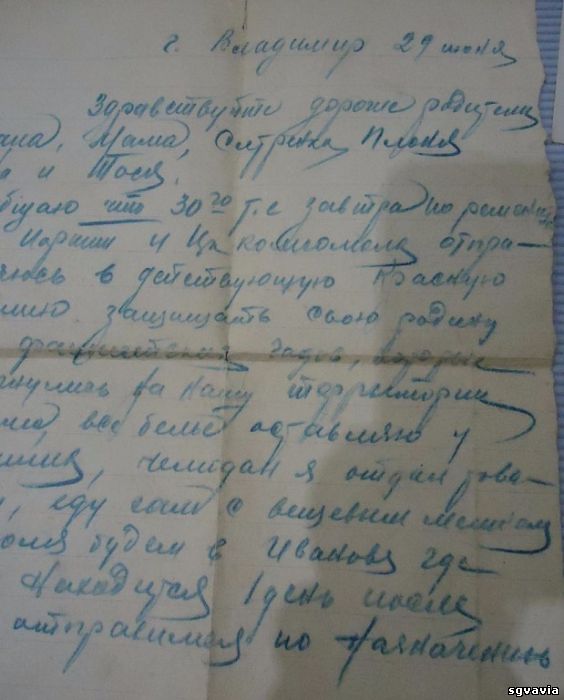 г. Владимир 29 июня
Здравствуйте дорогие родители
Мама, Сестренка
и Тося.
что 30го т.е завтра по
и Цк комсомола отпра-
в действующую Красную
защищать свою родину
гадов, которые
на нашу территорию
все белье оставляю у
чемодан я отдал това-
еду сам с вещевым мешком
будем в Иванове где
находится 1 день после
отправимся по назначению
sgvavia